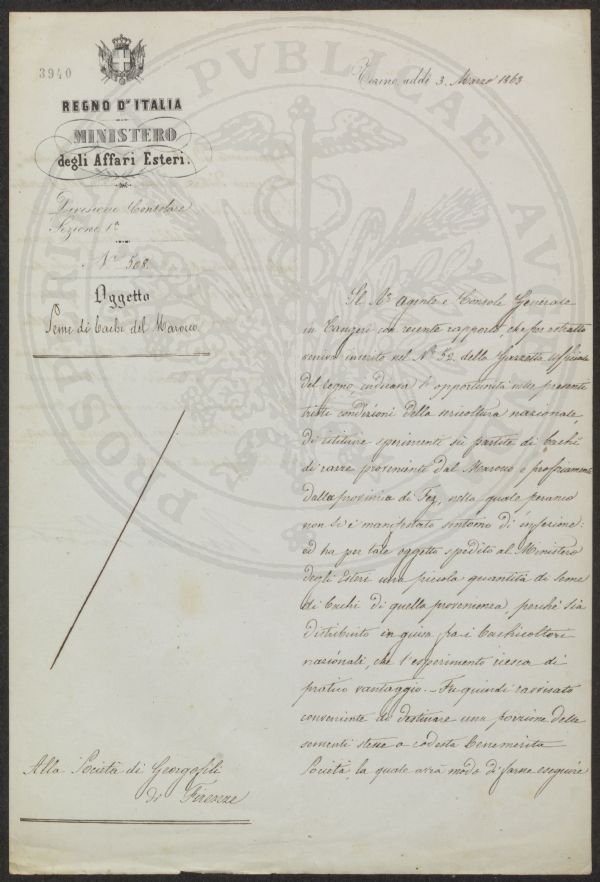 3940
REGNO D'ITALIA
MINISTERO
degli Affari Esteri.
Divisione Consolare
Sezione 1ª
Nº 508.
Oggetto
Seme di bachi del Marocco
Alla Società di Georgofili
di Firenze
Torino, addì 3. Marzo 1863
Il Rº Agente e Console Generale
in Tangeri con recente rapporto, che per estratto
veniva inserito nel Nº 52. della Gazzetta Ufficiale
del Regno, indicava l'opportunità nelle presenti
tristi condizioni della sericoltura nazionale,
di istituire sperimenti su partite di bachi
di razze proveniente dal Marocco e precisamente
dalla provincia di Fez, nella quale peranco
non si è manifestato sintomo di infezione:
ed ha per tale oggetto spedito al Ministero
degli Esteri una piccola quantità di seme
di bachi di quella provenienza, perchè sia
distribuito in guisa fra i bachicoltori
nazionali, che l'esperimento riesca di
pratico vantaggio. - Fu quindi ravvisato
conveniente di destinare una porzione delle
sementi stesse a codesta Benemerita
Società, la quale avrà modo di farne eseguire
PROSPERITATI PUBLICAE AUGENDAE